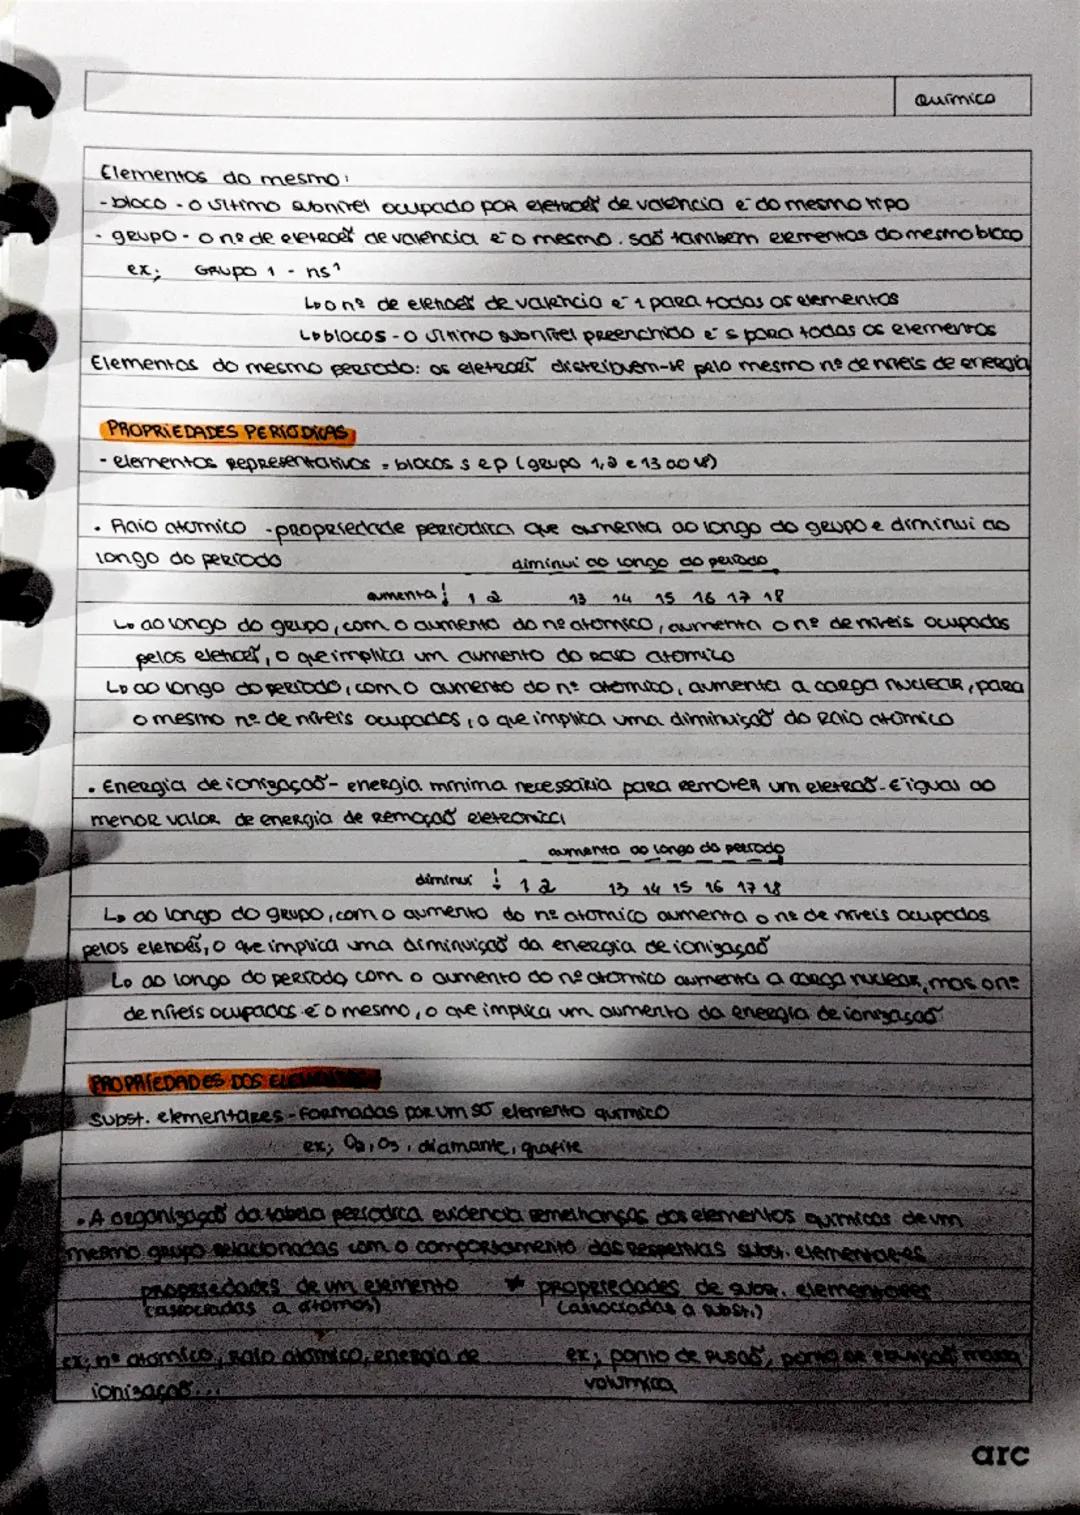 Química
Elementos do mesmo:
-bloco - o último subnível ocupado por eletrões de valência é do mesmo tipo
- grupo - o nº de eletrões de valência é o mesmo. são também elementos do mesmo bloco
ex: Grupo 1 - ns¹
↳ o nº de eletrões de valência é 1 para todos os elementos
↳ blocos - o último subnível preenchido é s para todos os elementos
Elementos do mesmo período: os eletrões distribuem-se pelo mesmo nº de níveis de energia
PROPRIEDADES PERIÓDICAS
- elementos representativos = blocos s e p (grupo 1, 2 e 13 ao 18)
• Raio atómico - propriedade periódica que aumenta ao longo do grupo e diminui ao
longo do período
diminui ao longo do período
aumenta ↓ 1 2 13 14 15 16 17 18
↳ ao longo do grupo, com o aumento do nº atómico, aumenta o nº de níveis ocupados
pelos eletrões, o que implica um aumento do raio atómico
↳ ao longo do período, com o aumento do nº atómico, aumenta a carga nuclear, para
o mesmo nº de níveis ocupados, o que implica uma diminuição do raio atómico
• Energia de ionização - energia mínima necessária para remover um eletrão. É igual ao
menor valor de energia de remoção eletrónica
aumenta ao longo do período
diminui ↓ 1 2 13 14 15 16 17 18
↳ ao longo do grupo, com o aumento do nº atómico aumenta o nº de níveis ocupados
pelos eletrões, o que implica uma diminuição da energia de ionização
↳ ao longo do período, com o aumento do nº atómico aumenta a carga nuclear, mas o nº
de níveis ocupados é o mesmo, o que implica um aumento da energia de ionização
PROPRIEDADES DOS
subst. elementares - formadas por um só elemento químico
ex: O₂, O₃, diamante, grafite
• A organização da tabela periódica evidencia semelhanças dos elementos químicos de um
mesmo grupo relacionadas com o comportamento das respetivas subst. elementares
propriedades de um elemento ≠ propriedades de subst. elementares
(associadas a átomos) (associadas a subst.)
ex: nº atómico, raio atómico, energia de ex: ponto de fusão, ponto de ebulição, massa
ionização... volúmica
arc